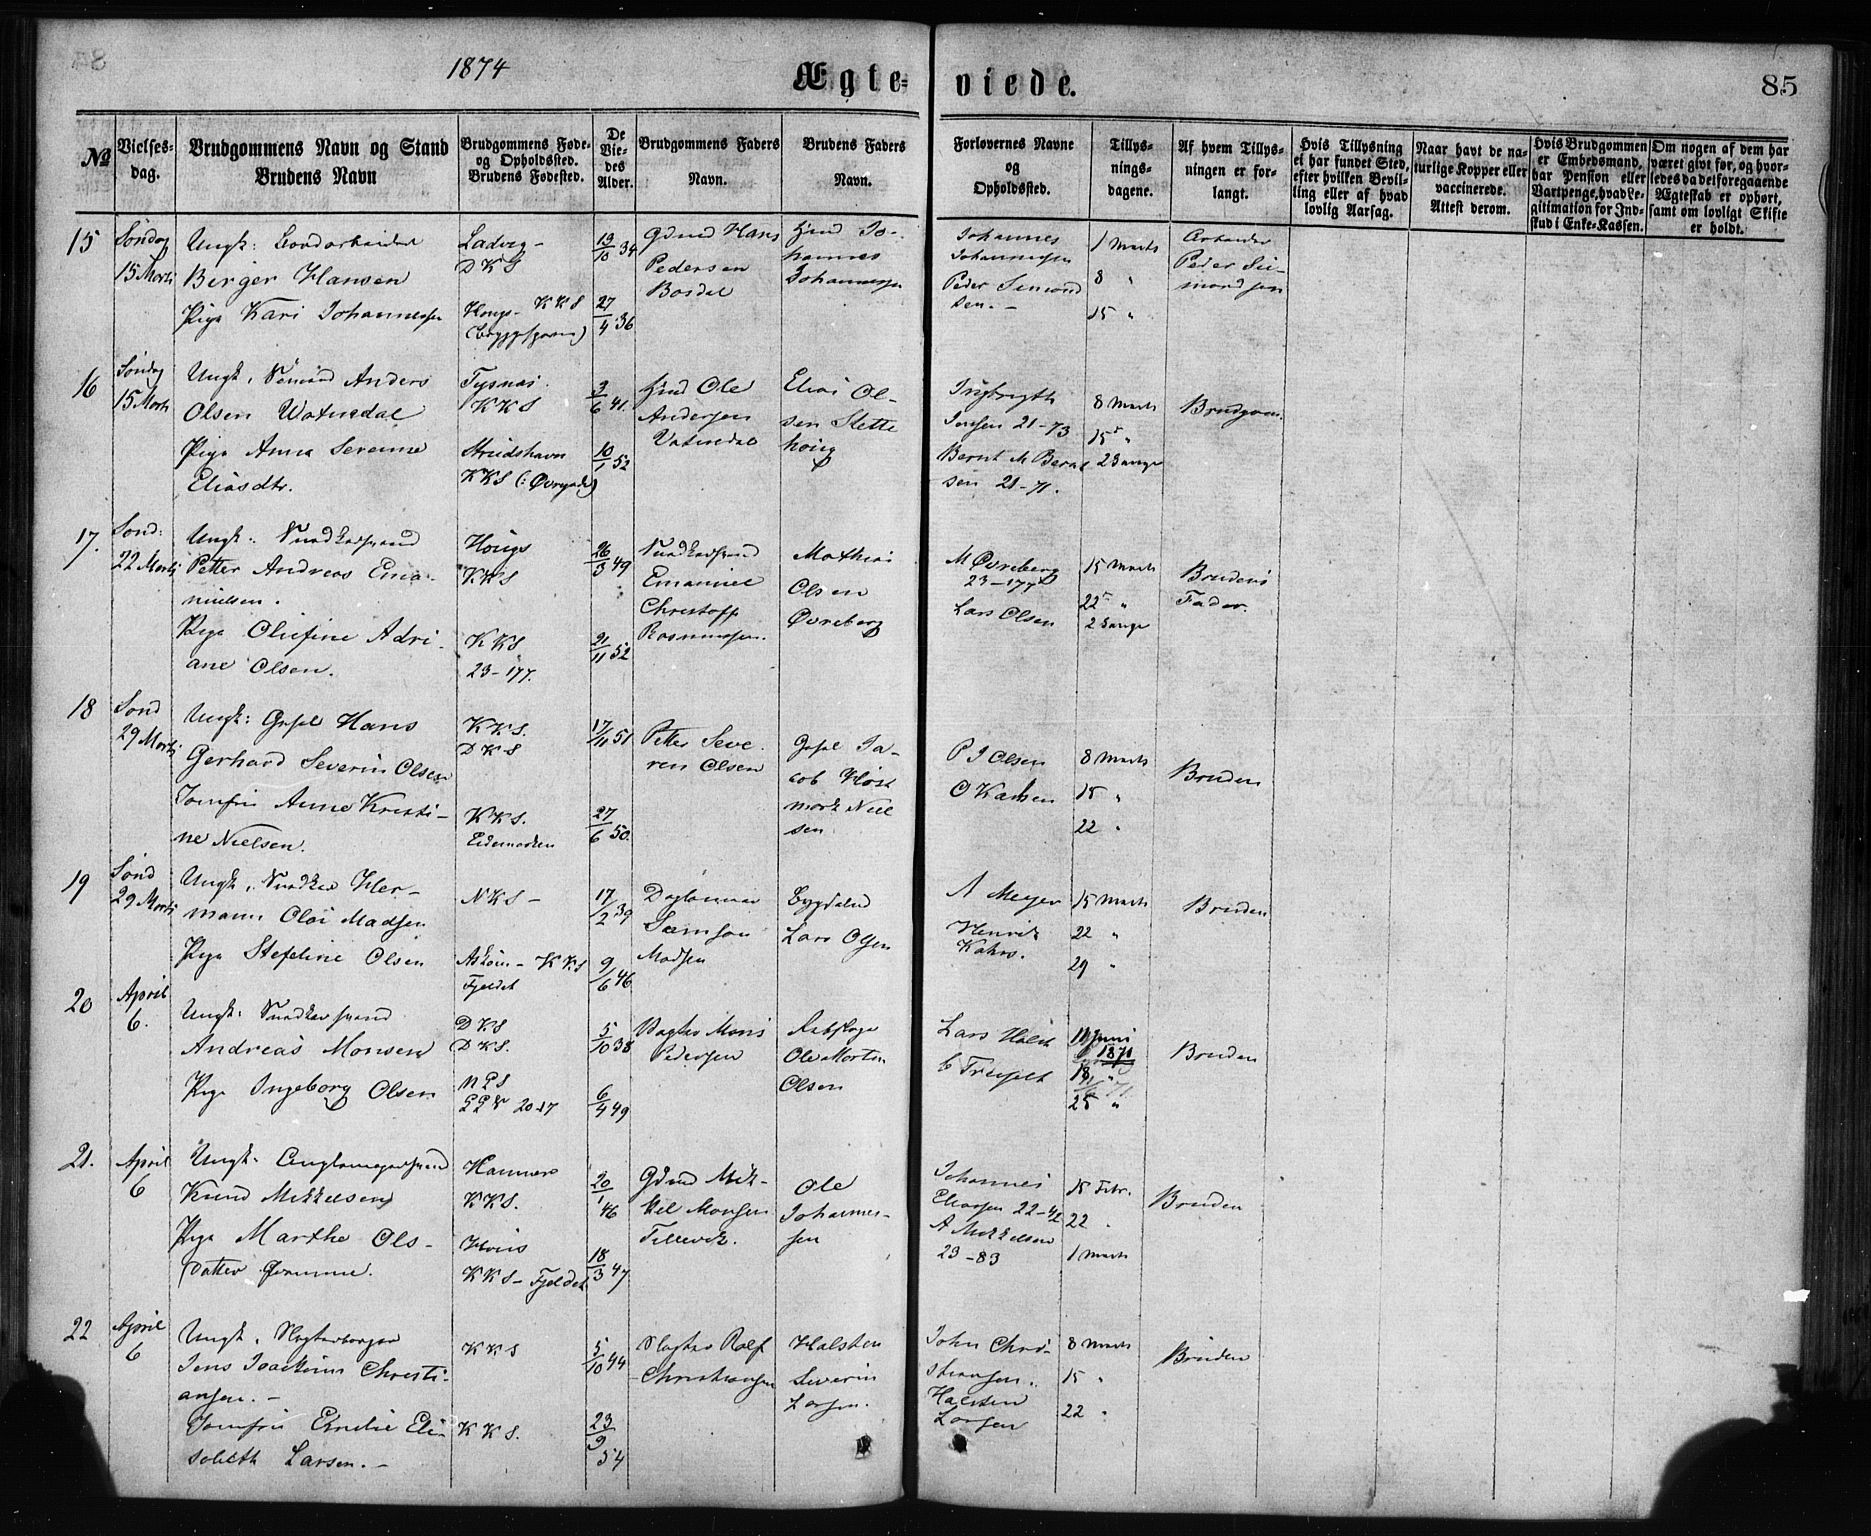 1874
Ægte-
viede.
85
No
Vielses-
dag.
Brudgommens Navn og Stand
Brudens Navn
Brudgommens Føde-
og Opholdssted.
Brudens Fødested.
De
Vie-
des
Alder.
Brudgommens Faders
Navn.
Brudens Faders
Navn.
Forlovernes Navne
og
Opholdssted.
Tillys-
nings-
dagene.
Af hvem Tillys-
ningen er for-
langt.
Hvis Tillysning
ei har fundet Sted,
efter hvilken Bevil-
ling eller af hvad
lovlig Aarsag.
Naar havt de na-
turlige Kopper eller
vaccinerede.
Attest derom.
Hvis Brudgommen
er Embedsmand,
har Pension eller
Vartpenge, hvad Le-
gitimation for Ind-
skud i Enke-Kassen.
Om nogen af dem har
været givt før, og hvor-
ledes da det foregaaende
Ægteskab er ophørt,
samt om lovligt Skifte
er holdt.
15
Søndag
15 Marts
Ungk:
Birger Hansen
Pige Kari Johannessen
Ladvig
DKS
KKS
13/10 34
27/4 36
Gdmd Hans
Pedersen
Bordal
Hmd Jo-
hannes
Johannessen
Johannes
Johannessen
Peder Simond
sen. -
1 Marts
8 "
15 "
Arbeider
Peder Si-
mondsen
16
Søndag
15 Marts
Ungk. Sømand Anders
Olsen Watnedal
Pige Anna Serenne
Eliasdtr.
Tysnæs
KKS
Strudshavn
KKS (: Øvregade)
3/6 41.
10/1 52
Hmd Ole
Andersen
Vatnedal
Elias Ol-
sen Slette
houg
Ingbrigth
Jensen 21-73
Bernt M Bernt
sen 21-71.
8 Marts
15 "
2 Gange
Brudgom.
17.
Sønd:
22 Marts
Ungk:
Petter Andreas Ema-
nuelsen.
Pige Olufine Adri-
ane Olsen.
Hougs
KKS
KKS
23-177.
26/3 49
21/11 52
Emanuel
Christoff
Rasmussen.
Mathias
Olsen
Øvreberg
M Øvreberg
23-177
Lars Olsen
15 Marts
22 "
2 Gange
Brudens
Fader.
18
Sønd
29 Marts
Ungk: Gesel Hans
Gerhard Severin Olsen
Jomfru Anne Kristi-
ne Nielsen.
KKS.
DKS
KKS.
Eidemarken
17/11 51
27/6 50.
Petter Seve-
ren Olsen
Gesel Ja-
cob Høst
mark Niel
sen
P J Olsen
O Karlsen
8 Marts
15 "
22 "
Bruden
19
Sønd
29 Marts
Ungk. Snedker Her-
mann Olai Madsen
Pige Stefeline Olsen
NKS -
Askøen - KKS
Fjeldet
17/2 39
9/6 46
Daglønner
Samson
Madsen
Bygdelnd
Lars Olsen
A Meyer
Henrik
Kahrs.
15 Marts
22 "
29 "
Bruden
20
April
6.
Ungk:
Andreas Monsen
Pige Ingeborg Olsen
DKS
DKS.
NKS
5/10 38
6/4 49
Vagter Mons
Pedersen
Rebslager
Ole Morten
Olsen
Lars Holst
C Trefelt
11 Juni
1871
18 "
25 "
Bruden
21.
April
6
Ungk.
Knud Mikkelsen
Pige Marthe Ols-
datter
Hammer
KKS.
Hvis
KKS - Fjeldet
20/1 46
18/3 47
Gdmd Mik-
kel Monsen
Tellevik.
Ole
Johannes-
sen
Johannes
Eliassen 22-42
A Mikkelsen
23-83
15 Febr.
22 "
1 Marts
Bruden
22
April
6
Ungk. Slagterborger
Jens Joachim Christi-
ansen. -
Jomfru Emilie Eli-
sabeth Larsen. -
KKS
KKS.
5/10 44
23/9 54
Slagter Rolf
Christiansen
Halsten
Severin
Larsen.
John Chri-
stiansen.
Halsten
Larsen
8 Marts
15 "
22 "
Bruden